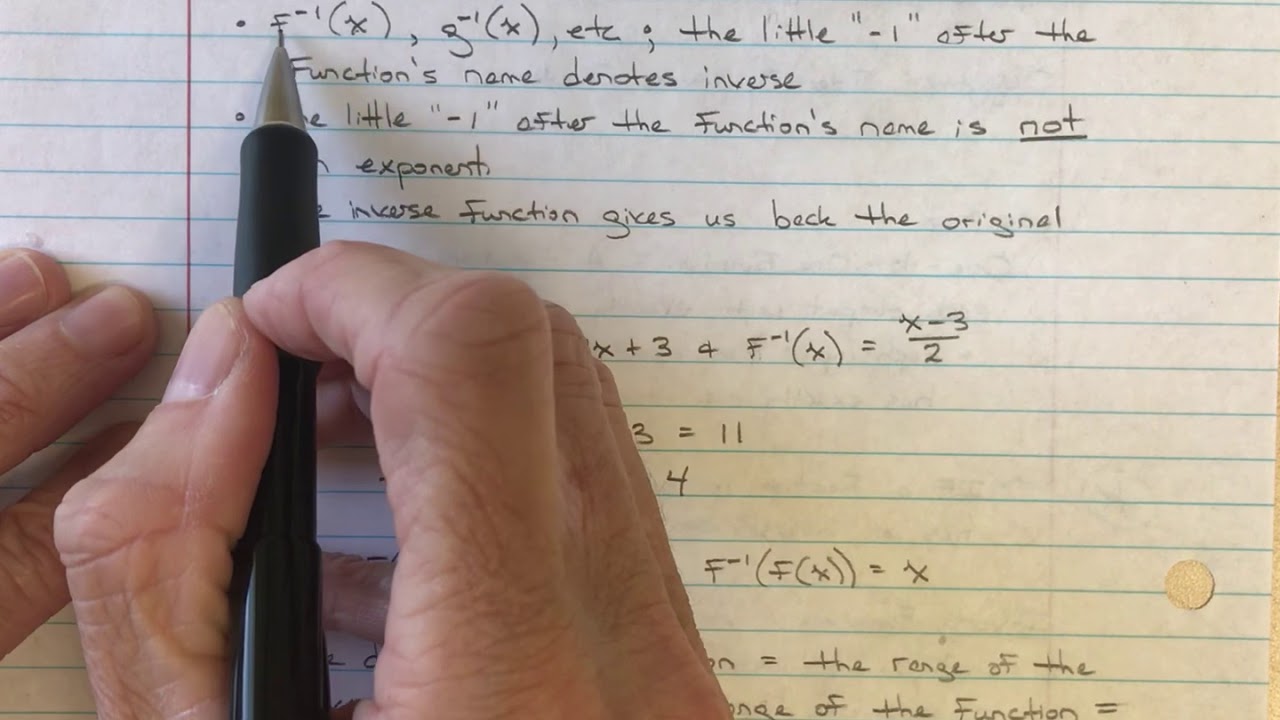 • F⁻¹(x), g⁻¹(x), etc ; the little "-1" after the
Function's name denotes inverse
• little "-1" after the Function's name is not
exponent
inverse Function gives us back the original
x + 3 & F⁻¹(x) = (x-3)/2
3 = 11
4
F⁻¹(F(x)) = x
= the range of the
of the Function =